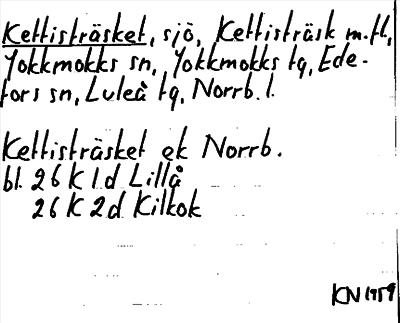 Kettisträsket, sjö, Kettisträsk m.fl,
Jokkmokks sn, Jokkmokks tg, Ede-
fors sn, Luleå tg, Norrb. l.
Kettisträsket ek Norrb.
bl. 26 K 1 d Lillå
26 K 2 d Kilkok
KN 1959